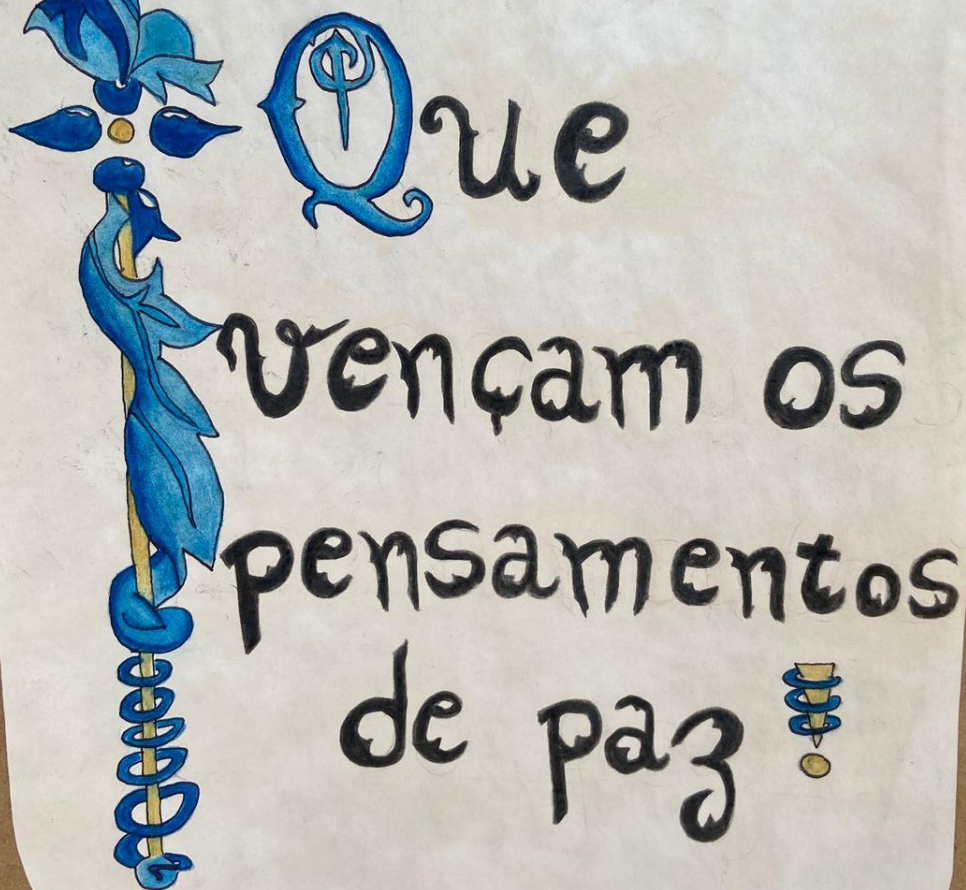 Que
vençam os
pensamentos
de paz!